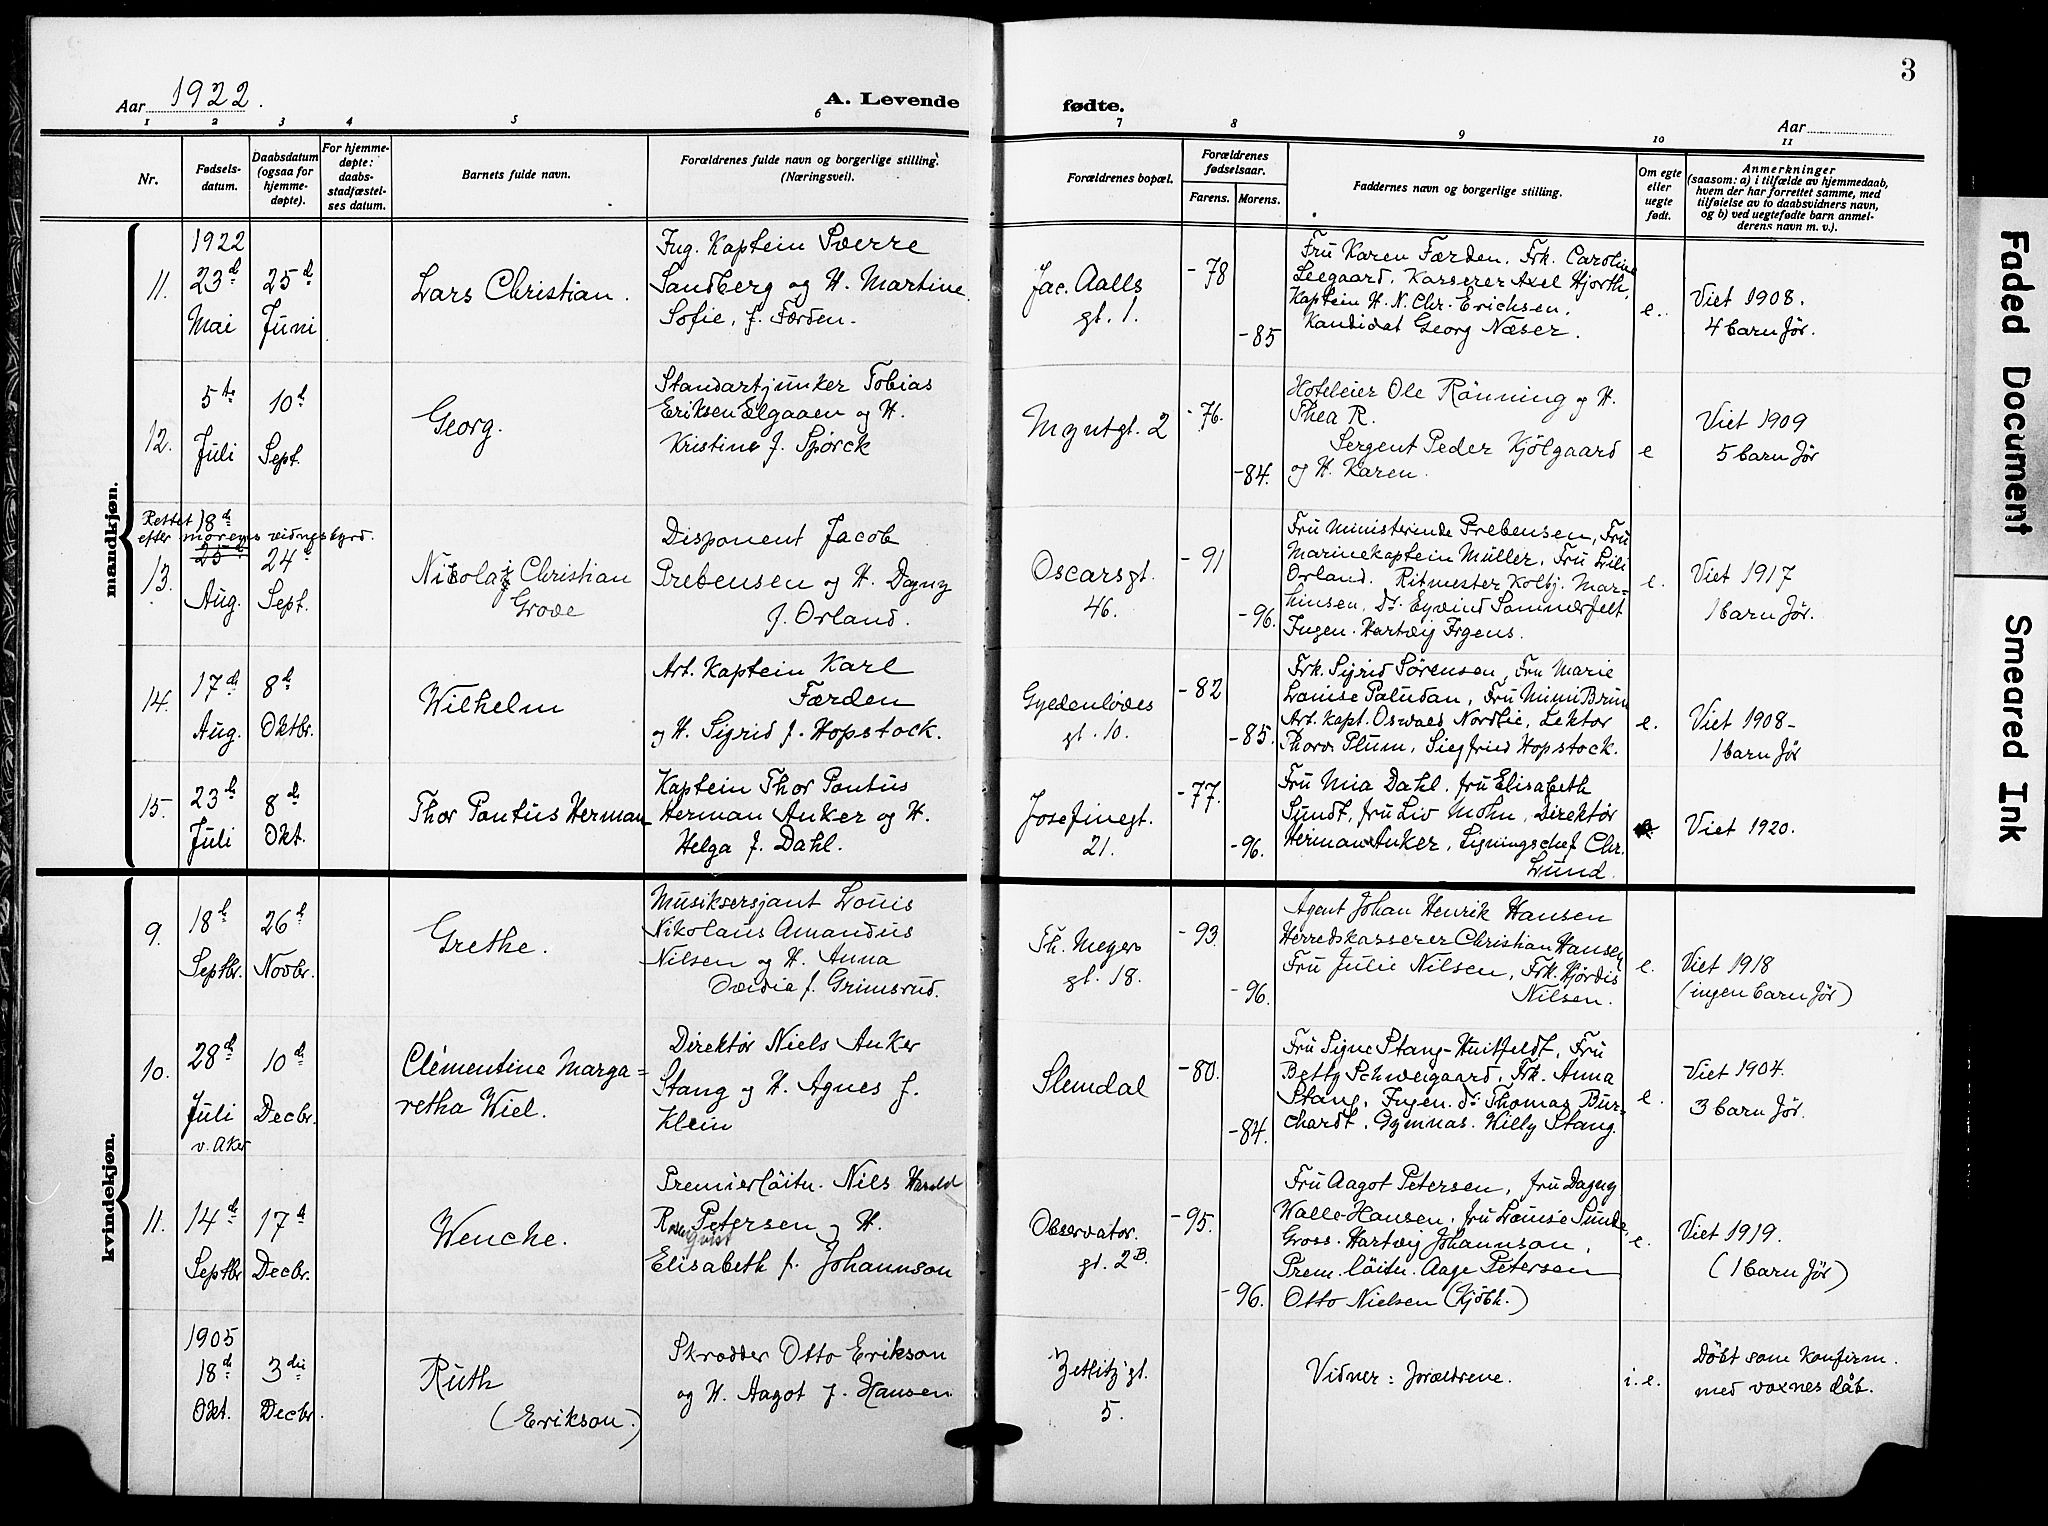 3
Aar 1922.
A. Levende
fødte.
Aar
1 2 3 4 5 6
7 8 9 10 11
Nr.
Fødsels-
datum.
Daabsdatum
(ogsaa for
hjemme-
døpte).
For hjemme-
døpte:
daabs-
stadfæstel-
ses datum.
Barnets fulde navn.
Forældrenes fulde navn og borgerlige stilling.
(Næringsvei).
Forældrenes bopæl.
Forældrenes
fødselsaar.
Farens. Morens.
Faddernes navn og borgerlige stilling.
Om egte
eller
uegte
født.
Anmerkninger
(saasom: a) i tilfælde av hjemmedaab,
hvem der har forrettet samme, med
tilføielse av to daabsvidners navn,
og b) ved uegtefødte barn anmel-
derens navn m. v.).
mandkjøn.
11.
1922
23d
Mai
25d
Juni
Lars Christian.
Ing. Kaptein Sverre
Sandberg og H. Martine
Sofie, f. Færden.
Jac. Aalls
gt. 1.
-78
-85
Fru Karen Færden. Frk. Caroline
Leegaard. Kasserer Axel Hjorth,
Kaptein H. N. Chr. Erichsen.
Kandidat Georg Næser.
e.
Viet 1908.
4 barn før.
12.
5te
Juli
10d
Sept.
Georg.
Standartjunker Tobias
Eriksen Elgaaen og H.
Kristine f. Spörck
Myntgt. 2
-76.
-84.
Hoteleier Ole Rönning og H.
Thea R.
Sergent Peder Kjölgaard
og H. Karen.
e
Viet 1909
5 barn før
Rettet 18d
efter morens vidnesbyrd.
13.
25d
Aug.
24d
Sept.
Nikolai Christian
Grove
Disponent Jacob
Prebensen og H. Dagny
f. Orland.
Oscarsgt.
46.
-91
-96.
Fru Ministerinde Prebensen, Fru
Marinekaptein Müller, Fru Lili
Orland. Ritmester Kolbj. Mar-
hinsen, Dr. Eyvind Sommerfelt
Ingen. Hartvig Irgens.
e.
Viet 1917
1 barn før.
14.
17d
Aug.
8d
Oktbr.
Wilhelm
Art. Kaptein Karl
Færden
og H. Sigrid f. Hopstock.
Gyldenløves
gt. 10.
-82
-85.
Frk. Sigrid Sørensen, Fru Marie
Louise Paludan, Fru Mimi Brun
Art. Kapt. Oswald Nordlie, Lektor
Thorv. Plum, Siegfried Hopstock.
e.
Viet 1908-
1 barn før
15.
23d
Juli
8d
Okt.
Thor Pontus Herman
Kaptein Thor Pontus
Herman Anker og H.
Helga f. Dahl.
Josefinegt.
21.
-77.
-96.
Fru Mia Dahl. fru Elisabeth
Sundt, fru Liv Mohn, Direktør
Herman Anker, Ligningschef Chr.
Lund.
Viet 1920.
kvindekjøn.
9.
18d
Septbr.
26d
Novbr.
Grethe.
Musiksersjant Louis
Nikolaus Amandus
Nilsen og H. Anna
Ovidia f. Grimsrud.
Th. Meyers
gt. 18.
-93.
-96.
Agent Johan Henrik Hansen
Herredskasserer Christian Hansen
Fru Julie Nilsen, Frk. Hjördis
Nilsen.
e.
Viet 1918
(ingen barn før)
10.
28d
Juli
v. Aker
10d
Decbr.
Clementine Marga=
retha Wiel.
Direktør Niels Anker
Stang og H. Agnes f.
Klein
Slemdal
-80.
-84.
Fru Signe Stang-Huitfeldt, Fru
Betty Schweigaard, Frk. Anna
Stang, Ingen. dr. Thomas Bur-
chardt, Gymnas. Willy Stang.
e.
Viet 1904.
3 barn før.
11.
14d
Septbr
17d
Decbr.
Wenche.
Premierløitn. Nils Harald
Rosenqvist Petersen og H.
Elisabeth f. Johannson
Observator.
gt. 2B.
-95.
-96.
Fru Aagot Petersen, fru Dagny
Walle-Hansen, fru Louise Sunde,
Gross. Hartvig Johannson,
Prem. løitn. Aage Petersen
Otto Nielsen (Kjöbh.)
e.
Viet 1919.
(1 barn før)
1905
18d
Okt.
3die
Decbr.
Ruth
(Erikson.)
Skrædder Otto Erikson
og H. Aagot f. Hansen
Zetlitz' gt.
5.
Vidner: Forældrene.
i. e.
Döbt som Konfirm.
med voxnes dåb.
Faded Document
Smeared Ink